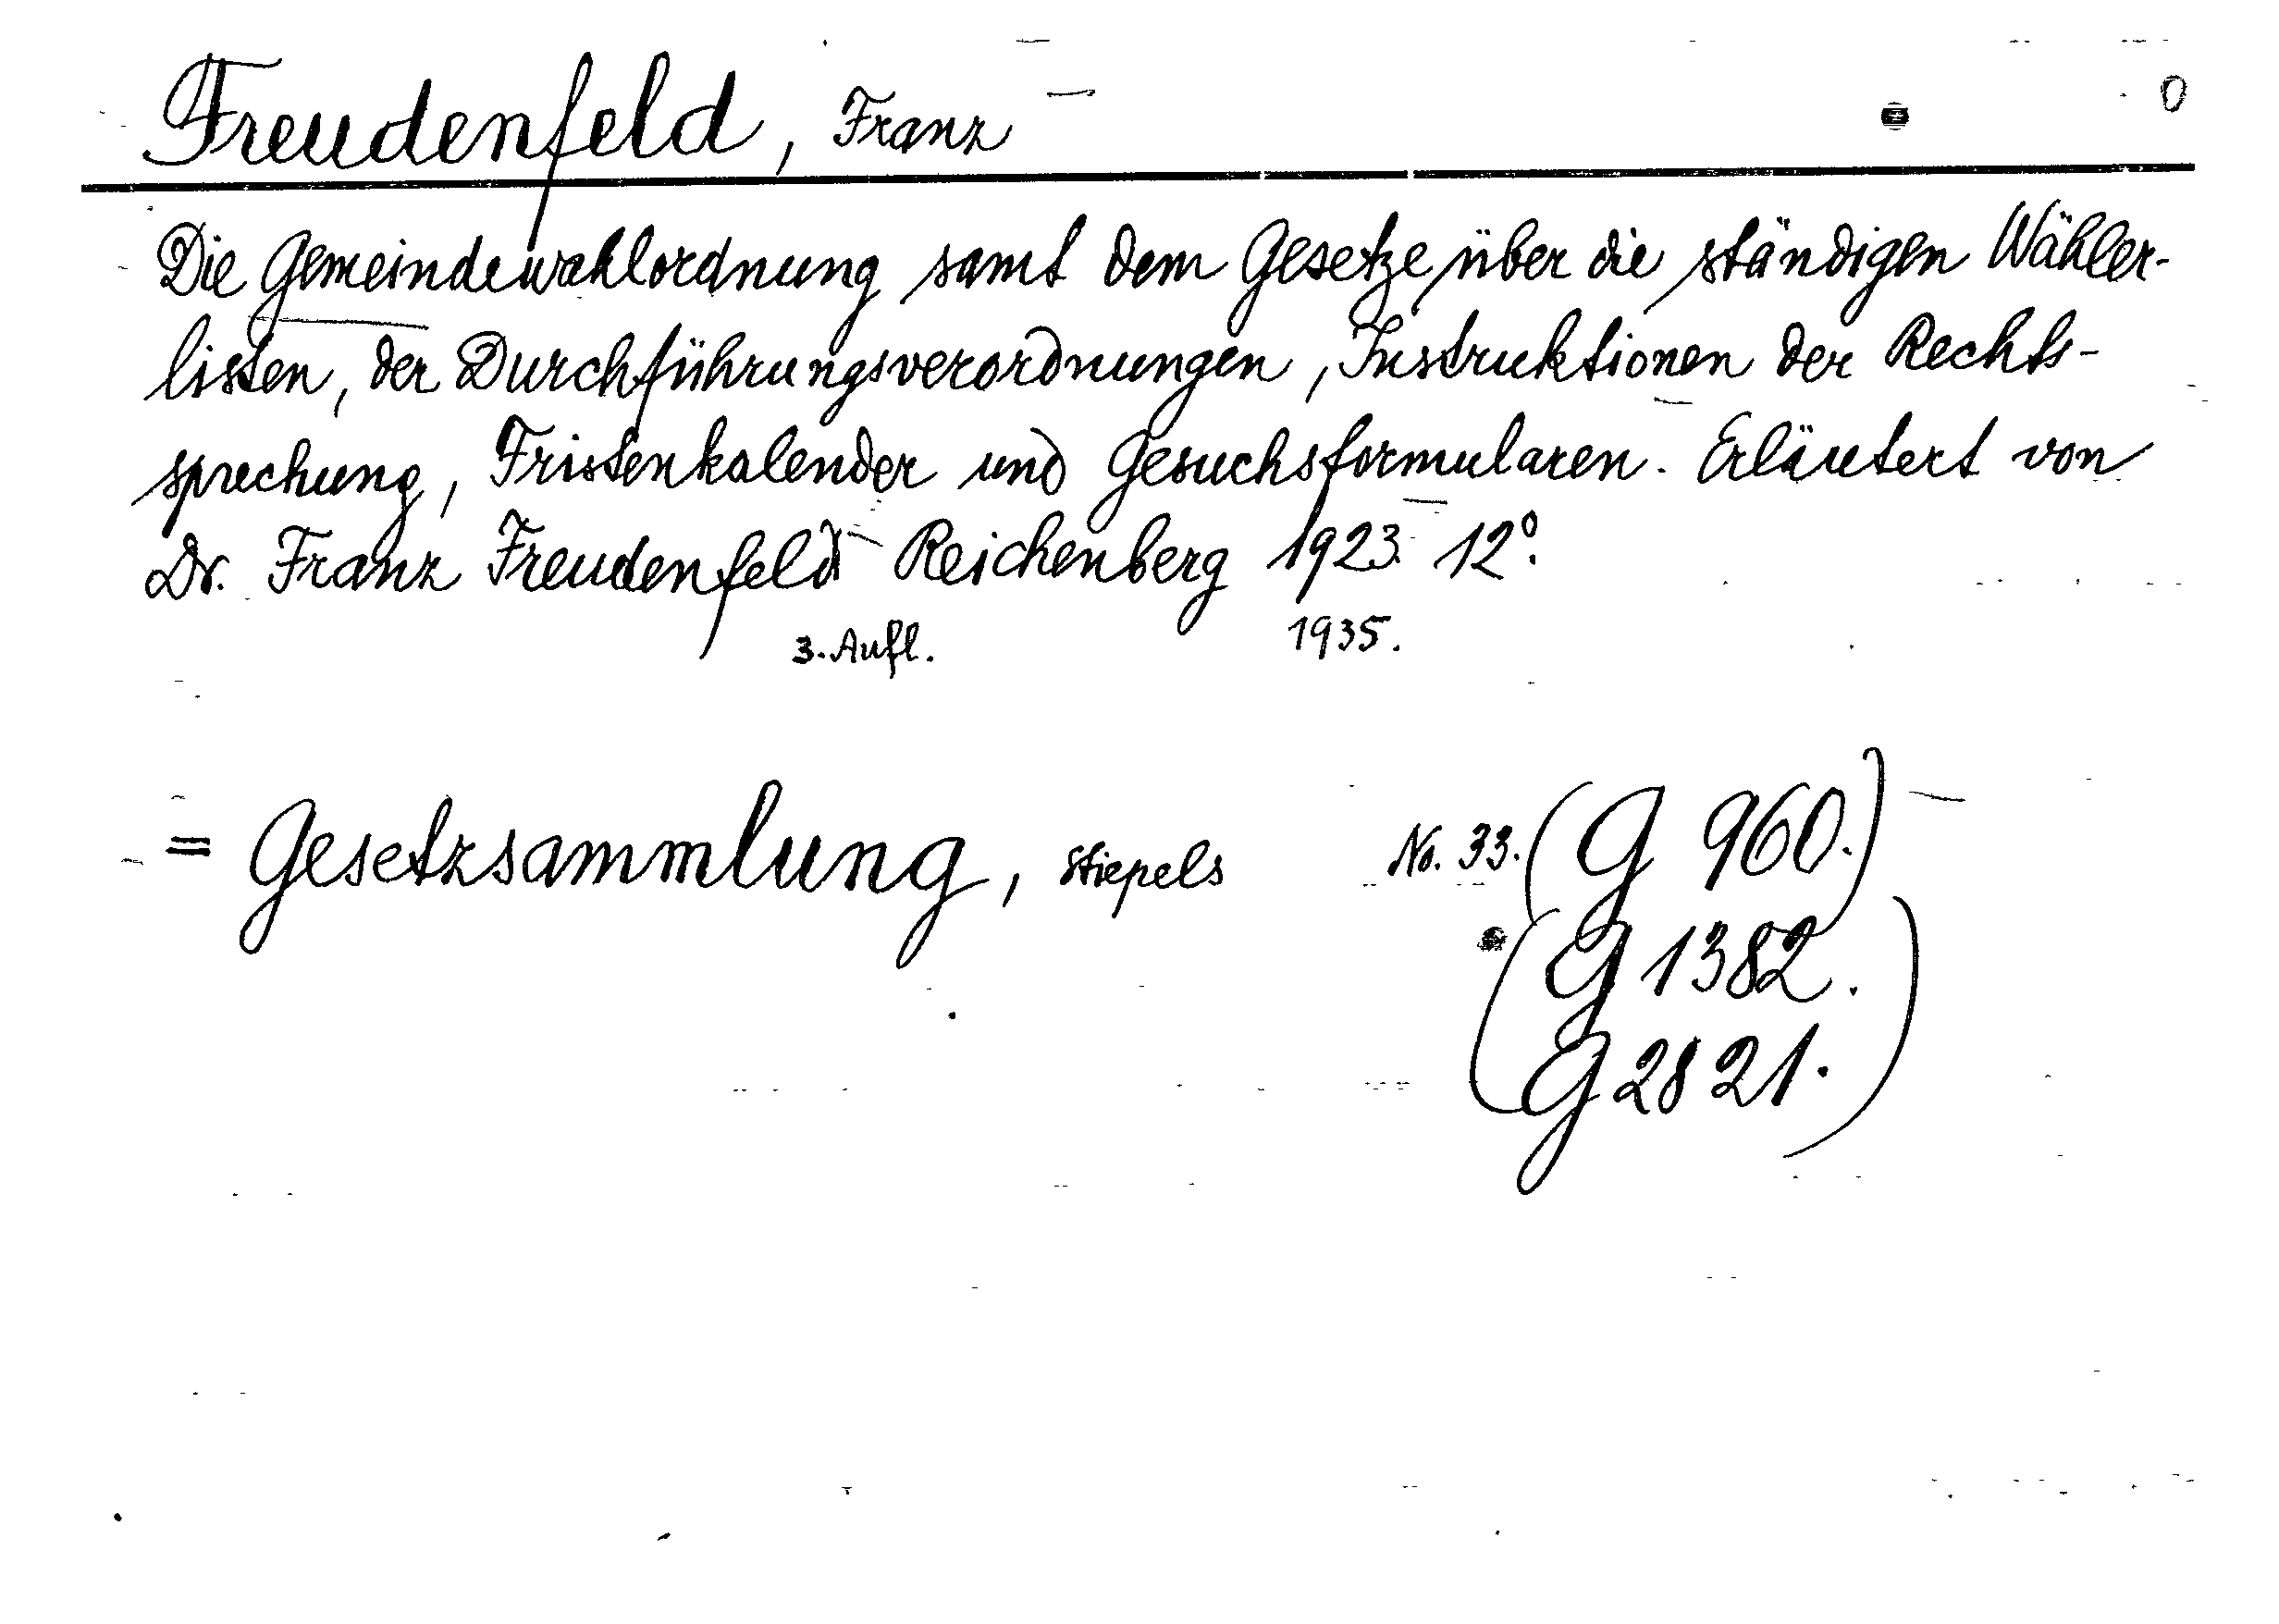 Freudenfeld, Franz
0
Die Gemeindewahlordnung samt dem Gesetze über die ständigen Wähler-
listen, der Durchführungsverordnungen, Instruktionen der Rechts-
sprechung, Fristenkalender und Gesuchsformularen. Erläutert von
Dr. Franz Freudenfeld Reichenberg 1923. 12°.
3. Aufl. 1935.
= Gesetzsammlung, Stiepels No. 33. (G 960.)
(G 1382.
G 2821.)